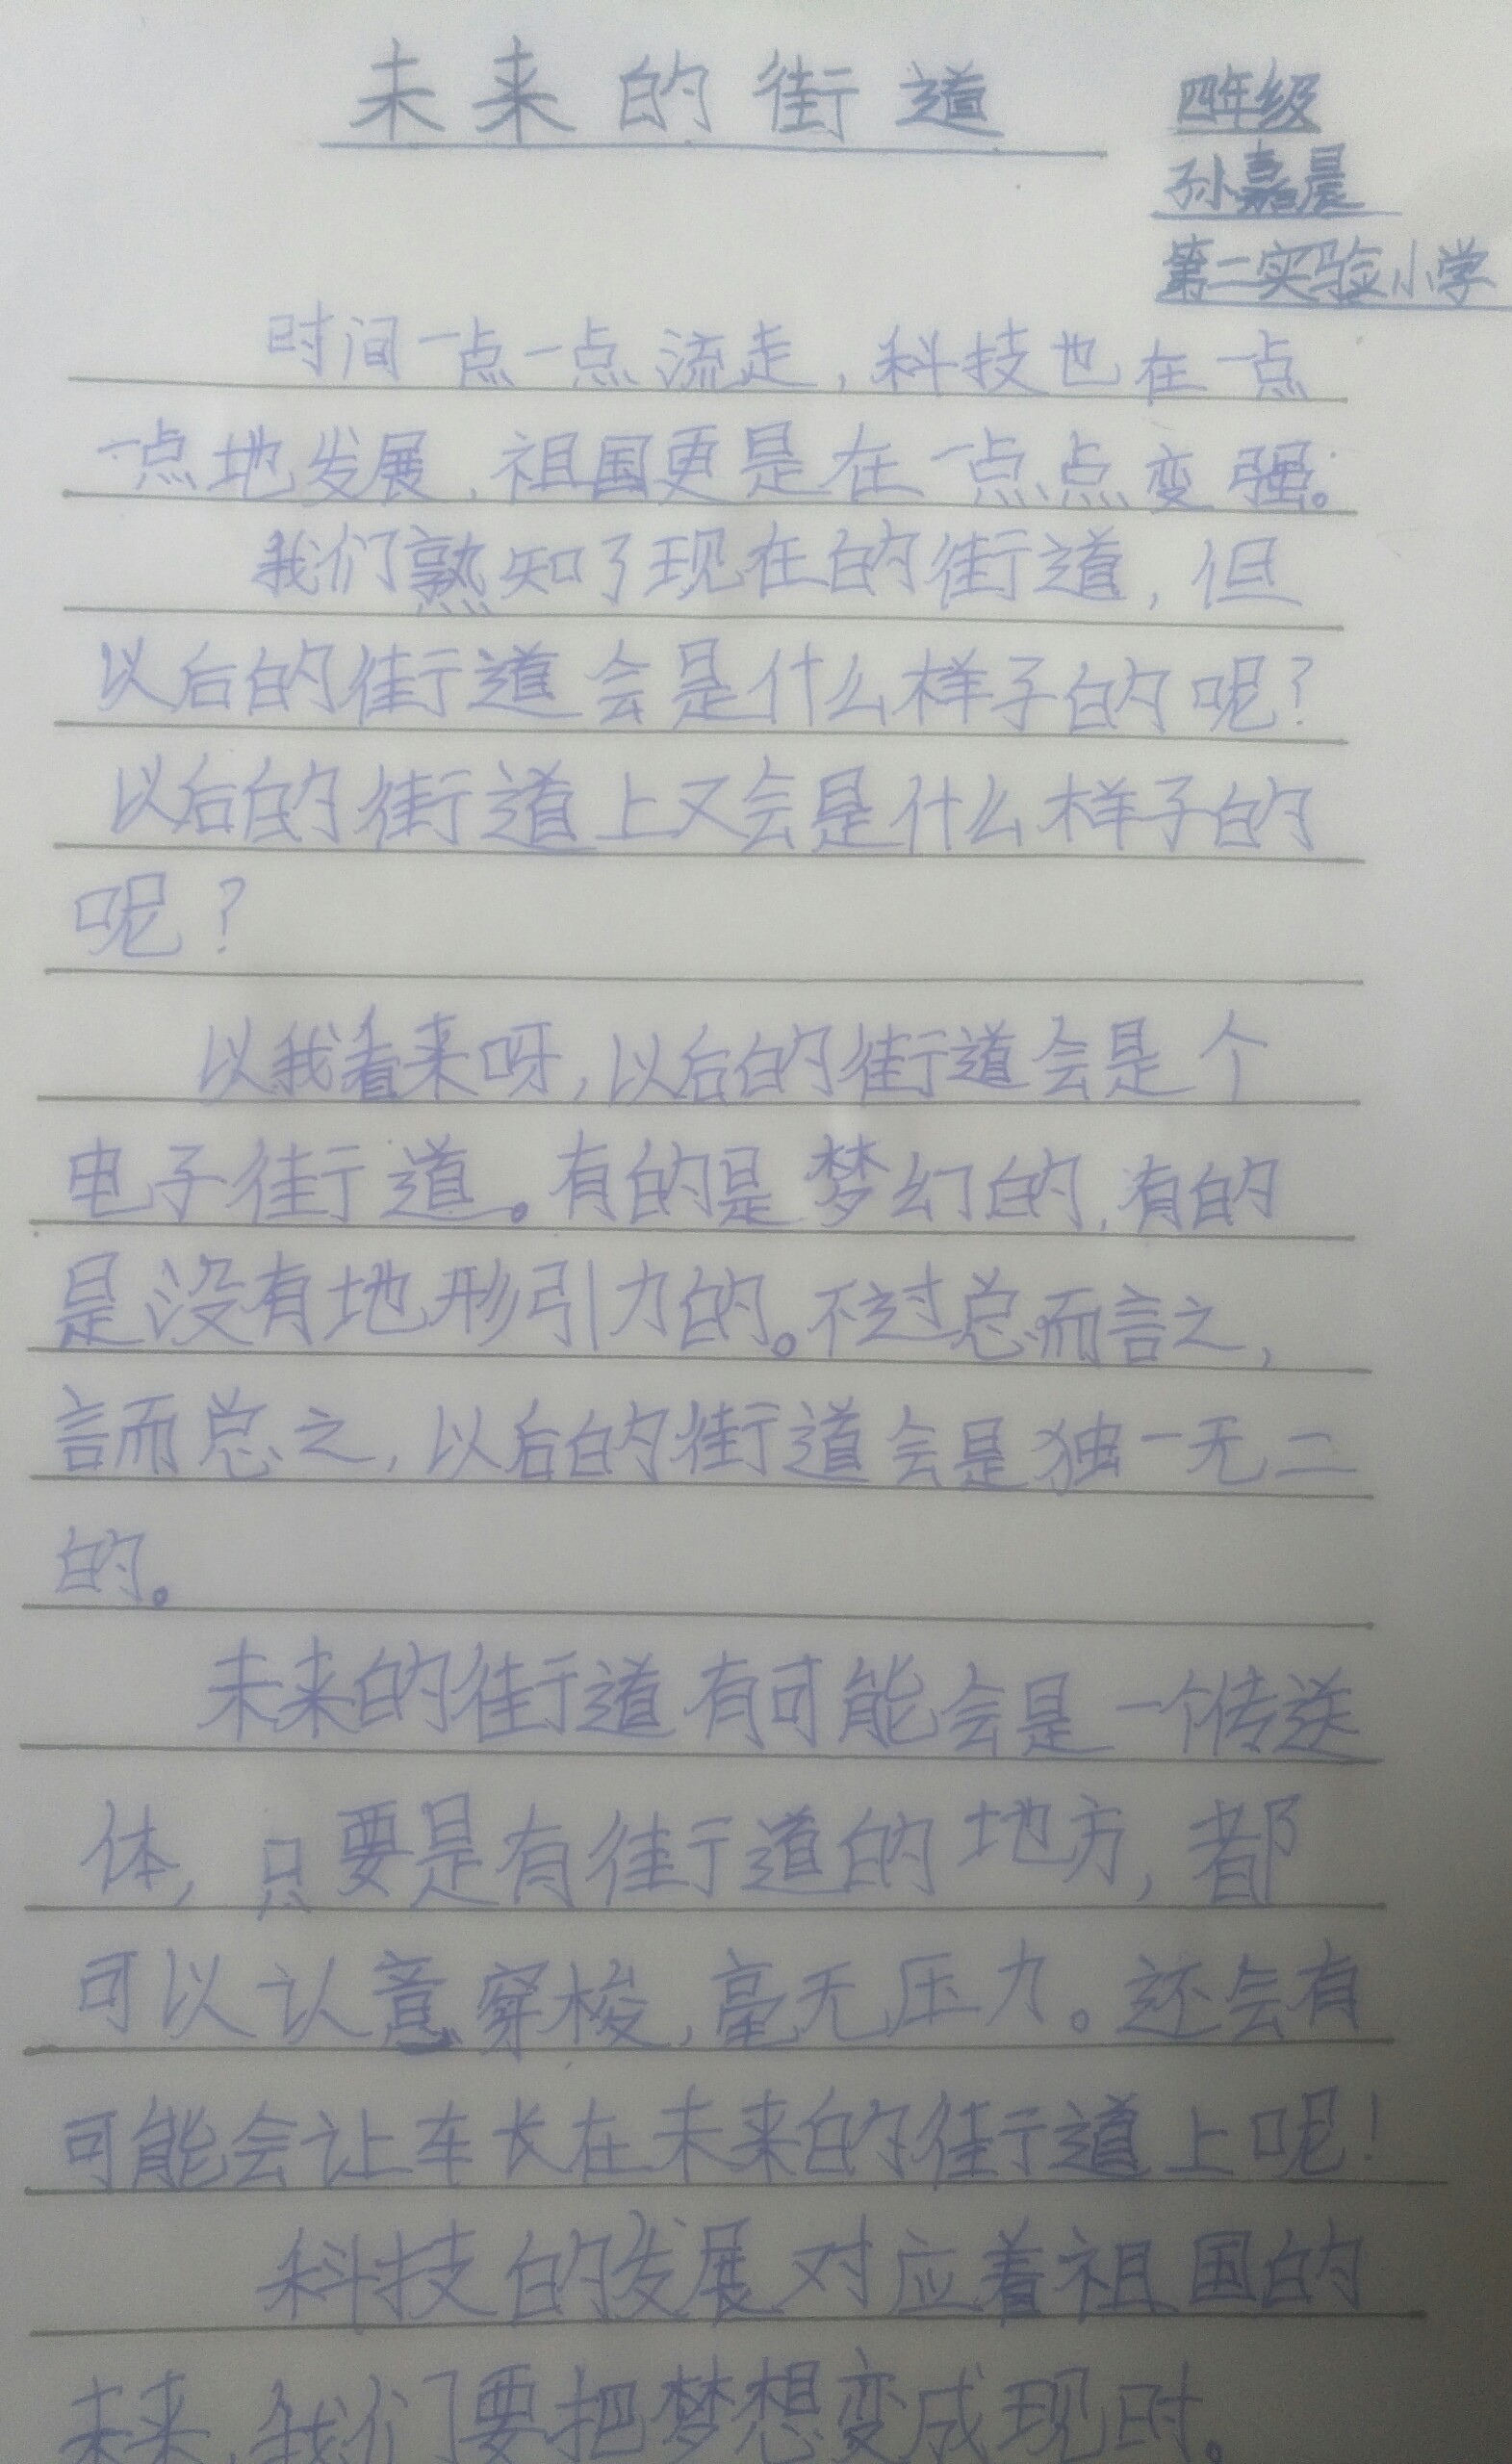 未来的街道
四年级
孙嘉晨
第二实验小学
时间一点一点流走，科技也在一点
一点地发展，祖国更是在一点点变强。
我们熟知了现在的街道，但
以后的街道会是什么样子的呢？
以后的街道上又会是什么样子的
呢？
以我看来呀，以后的街道会是个
电子街道。有的是梦幻的，有的
是没有地形引力的。不过总而言之，
言而总之，以后的街道会是独一无二
的。
未来的街道有可能会是一个传送
体，只要是有街道的地方，都
可以认意穿梭，毫无压力。还会有
可能会让车长在未来的街道上呢！
科技的发展对应着祖国的
未来，我们要把梦想变成现时。